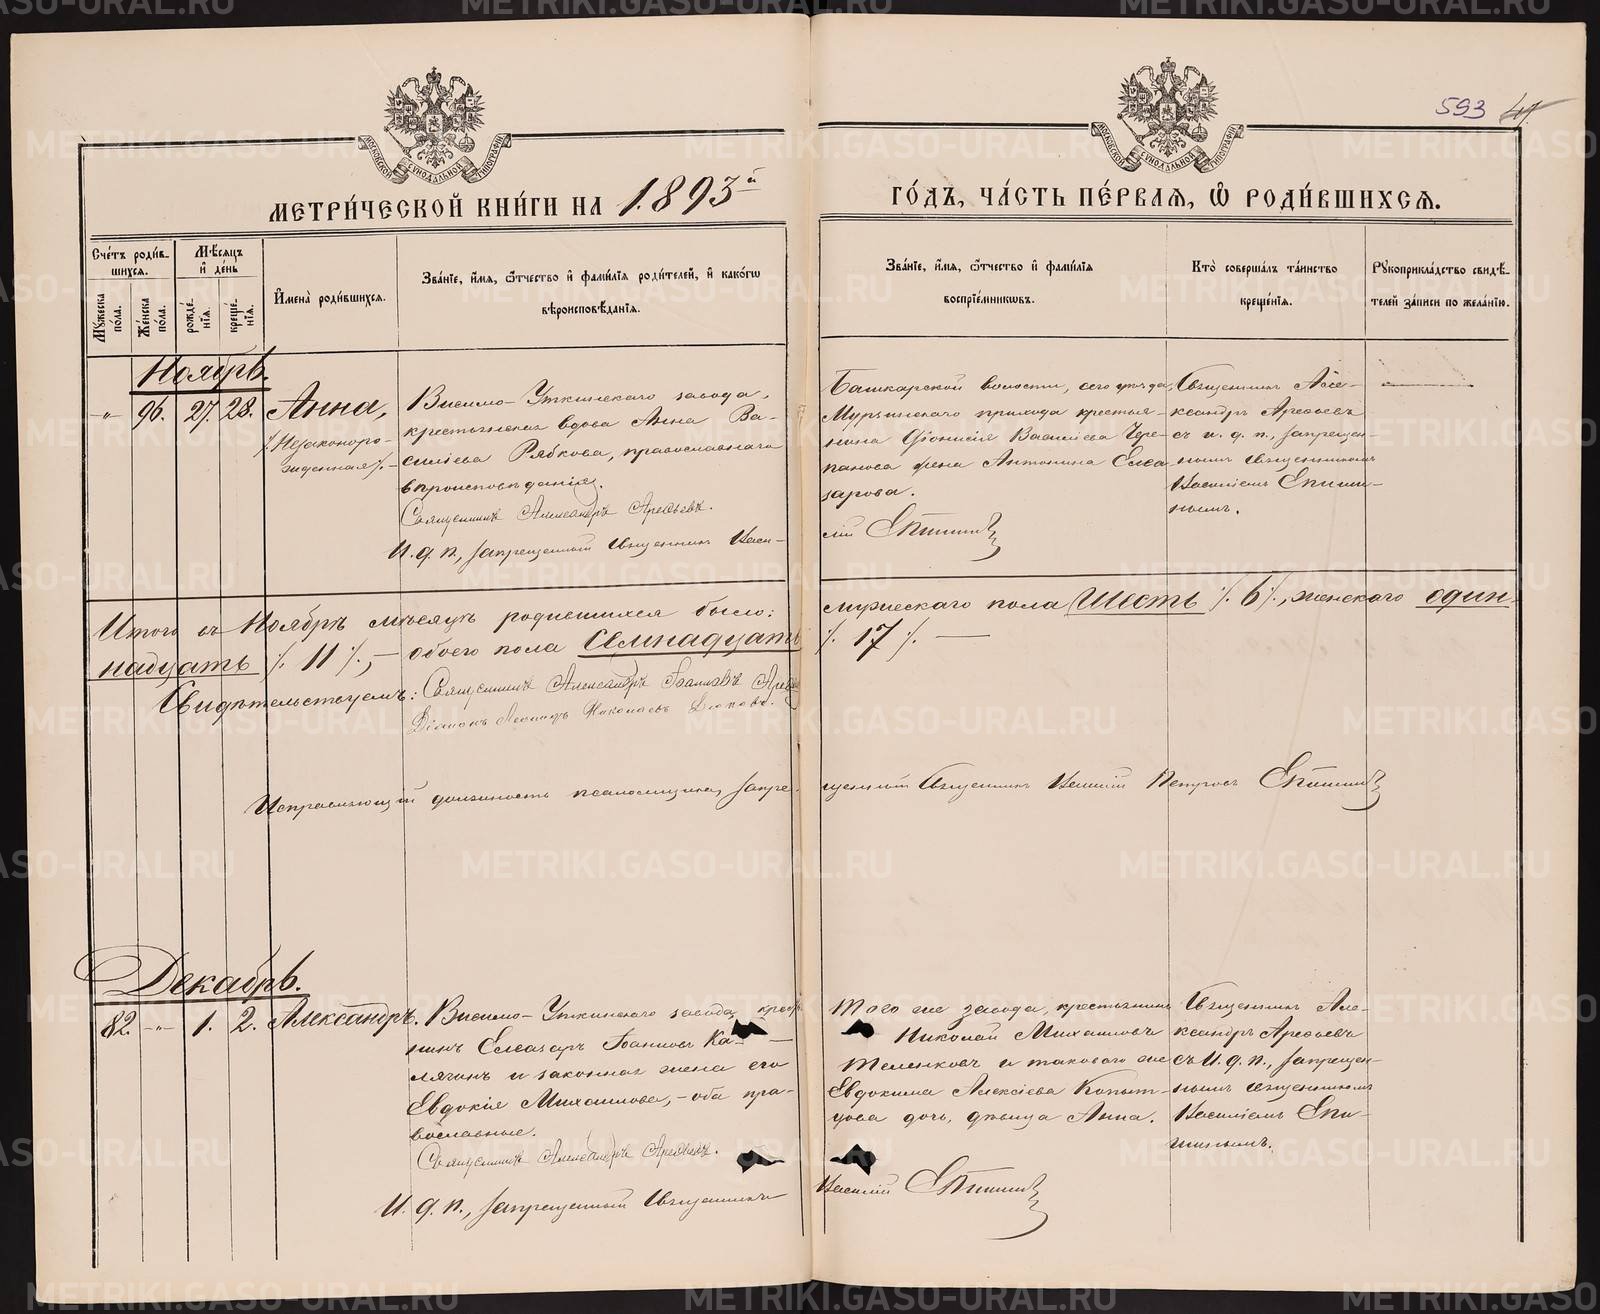 593
МОСКОВСКОЙ СѴНОДАЛЬНОЙ ТИПОГРАФІИ
МОСКОВСКОЙ СѴНОДАЛЬНОЙ ТИПОГРАФІИ
МЕТРИ́ЧЕСКОЙ КНИ́ГИ НА 1893й
ГО́ДЪ, ЧА́СТЬ ПЕ́РВАЯ, Ѡ҆ РОДИ́ВШИХСЯ.
Сче́тъ роди́в-
шихся.
Мꙋ́жеска по́ла.
Же́нска по́ла.
Мѣ́сяцъ и҆ де́нь
рожде́-нїя.
креще́-нїя.
И҆мена̀ роди́вшихся.
Зва́нїе, и҆́мя, ѻ҆́тчество и҆ фами́лїя роди́телей, и҆ како́гѡ
вѣроисповѣ́данїя.
Зва́нїе, и҆́мя, ѻ҆́тчество и҆ фами́лїя
воспрїе́мникѡвъ.
Кто̀ соверша́лъ та́инство
креще́нїя.
Рꙋкоприкла́дство свидѣ́-
телей за́писи по жела́нїю.
Ноябрь.
-"- 96. 27. 28. Анна,
/Незаконоро-
жденная/.-
Висимо-Уткинскаго завода,
крестьянская вдова Анна Ва-
силіева Рябкова, православнаго
вѣроисповѣданія.
Священникъ Александръ Арефьевъ.
И. д. п., запрещенный Священникъ Васи-
Башкарской волости, сего уѣзда,
Мурзинскаго прихода крестья-
нина Діонисія Василіева Чере-
панова жена Антонина Елеа-
зарова.
лій Епишинъ
Священникъ Але-
ксандръ Арефьевъ
съ и. д. п., запрещен-
нымъ Священникомъ
Василіемъ Епиши-
нымъ.
Итого въ Ноябрѣ мѣсяцѣ родившихся было: мужескаго пола шесть /. 6 /., женскаго один-
надцать /. 11 /.,- обоего пола Семнадцать /. 17 /. —
Свидѣтельствуемъ: Священникъ Александръ Іоанновъ Арефьевъ
Діаконъ Леонидъ Николаевъ
Исправляющій должность псаломщика, запре-
щенный Священникъ Василій Петровъ Епишинъ
Декабрь.
82. -"- 1. 2. Александръ.
Висимо-Уткинскаго завода крестья-
нинъ Елеазаръ Іоанновъ Ка-
лягинъ и законная жена его
Евдокія Михаилова,- оба пра-
вославные.
Священникъ Александръ Арефьевъ.
И. д. п., запрещенный Священникъ
Того же завода, крестьянинъ
Николай Михаиловъ
Теленковъ и таковаго же
Евдокима Алексіева Копыт-
цова дочь, дѣвица Анна.
Василій Епишинъ
Священникъ Але-
ксандръ Арефьевъ
съ И. д. п., запрещен-
нымъ священникомъ
Василіемъ Епи-
шинымъ.
METRIKI.GASO-URAL.RU